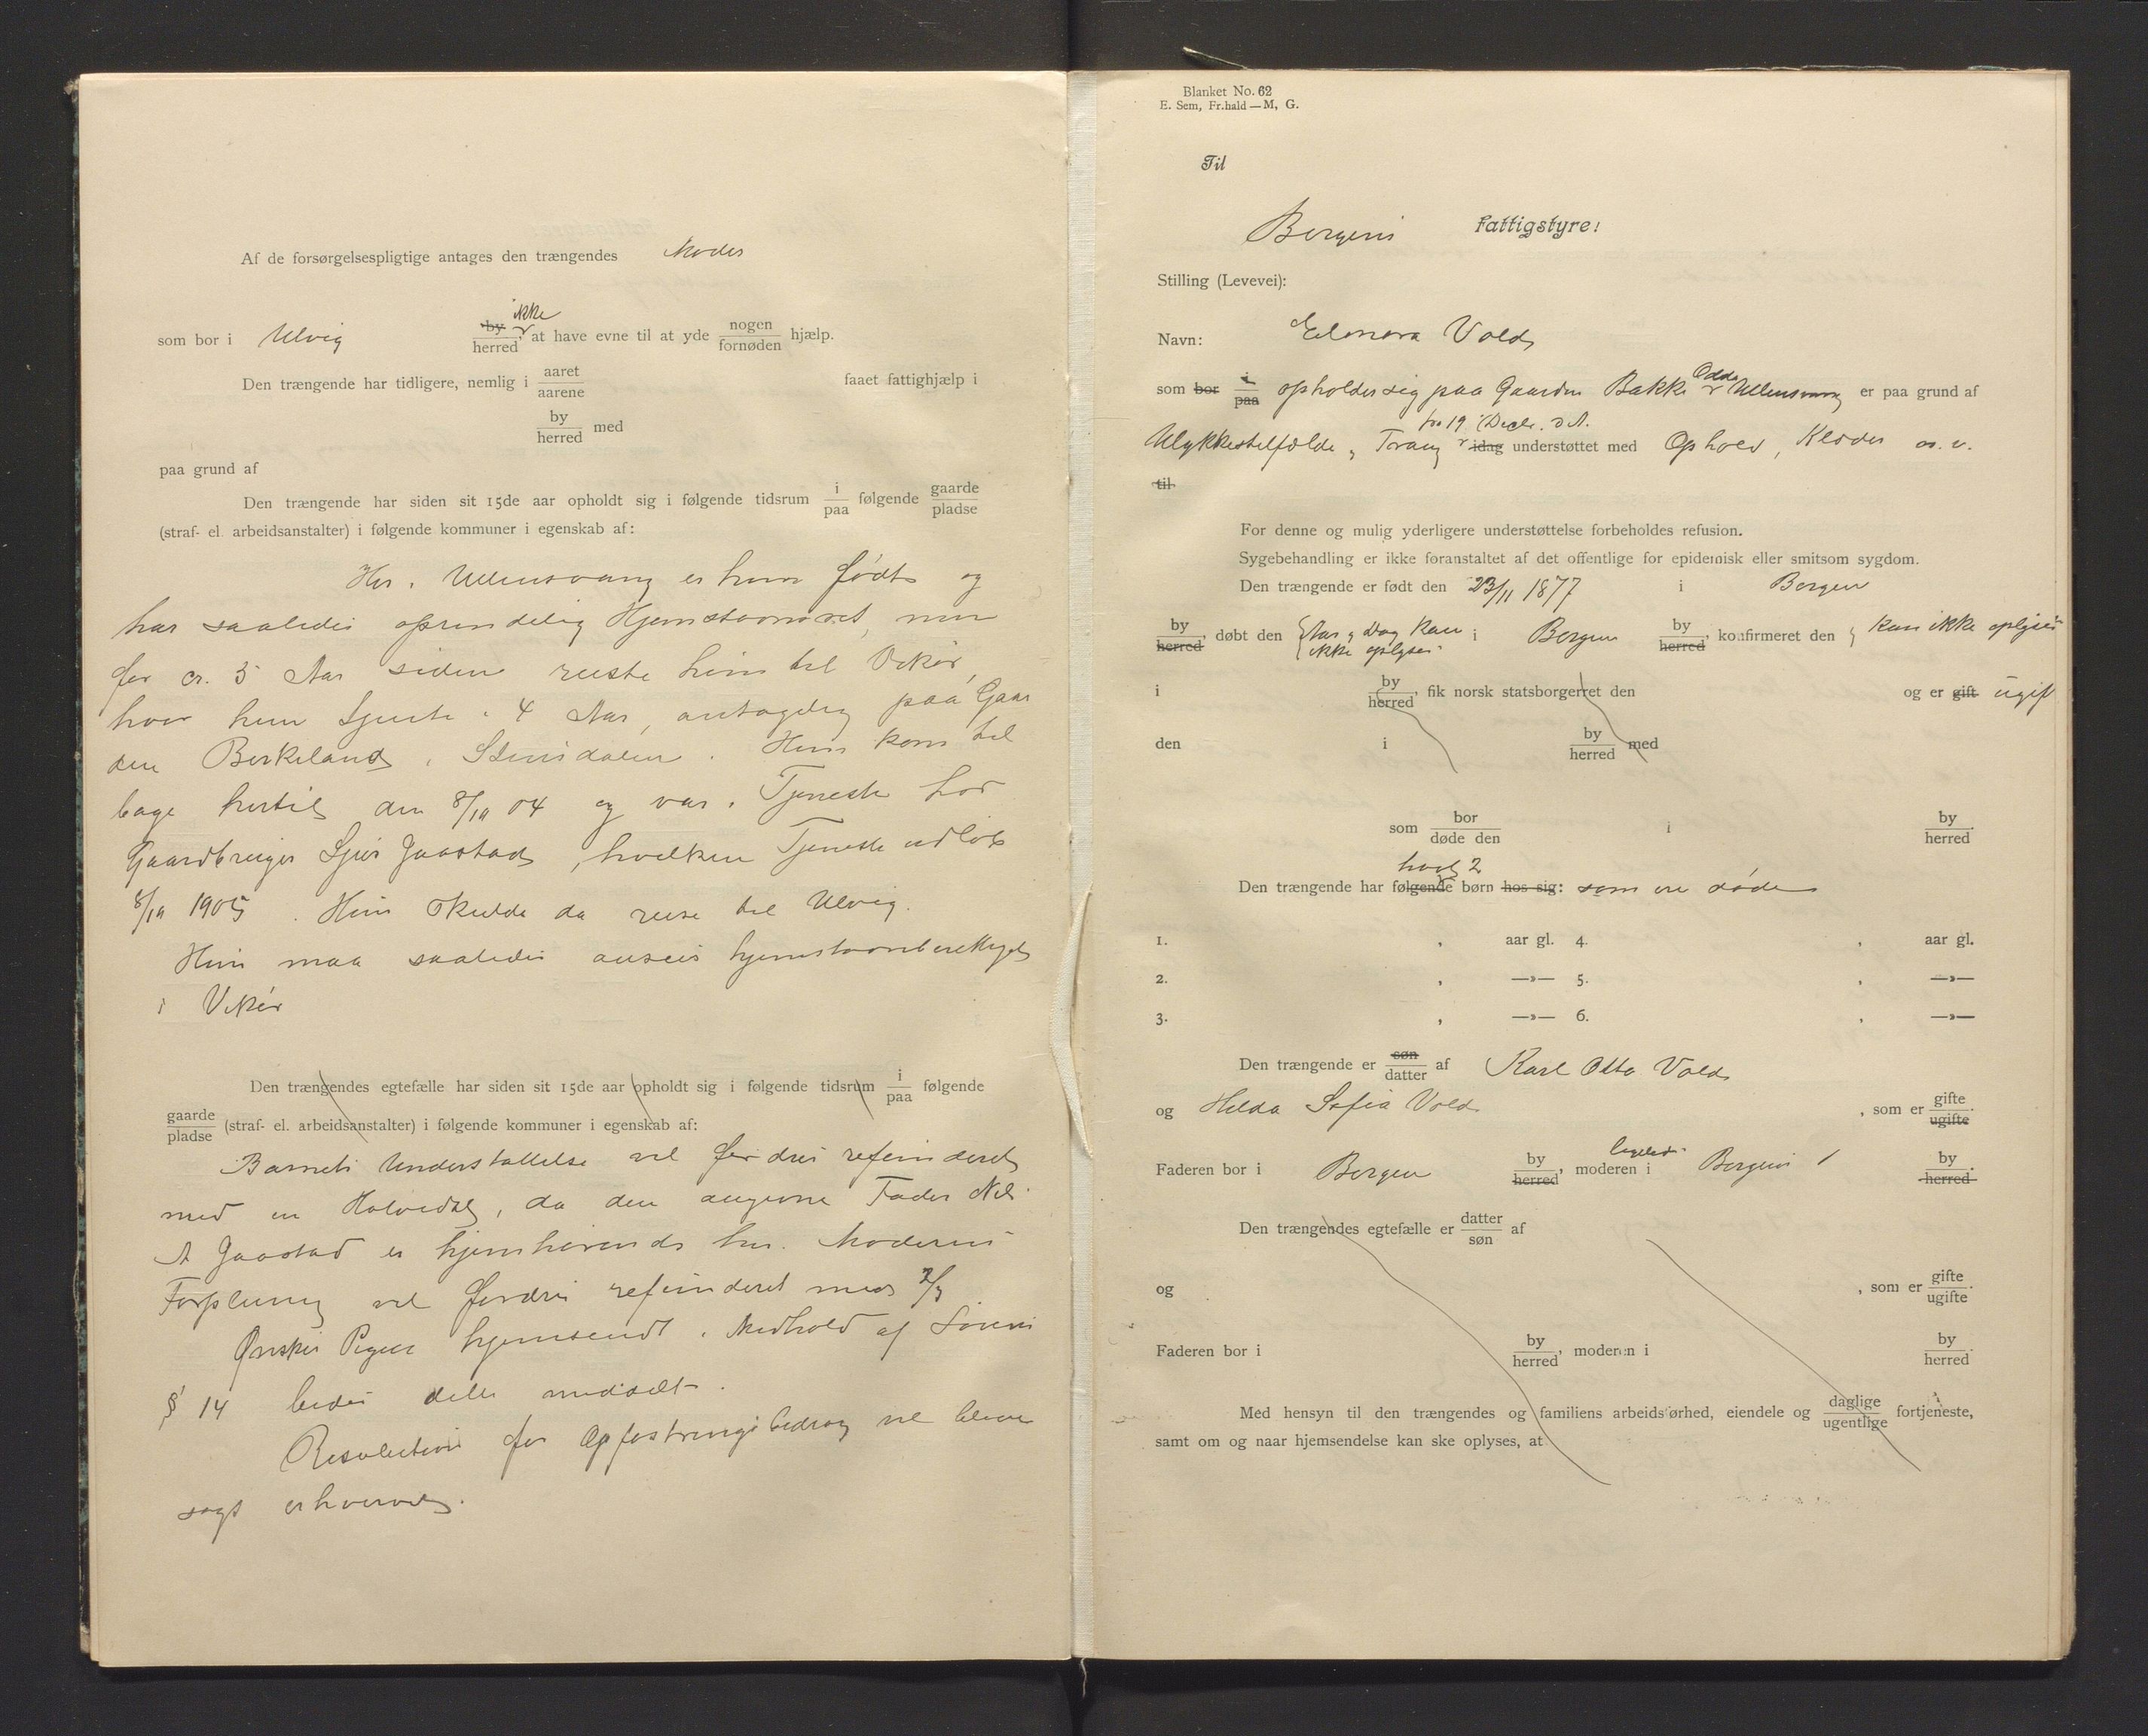 Af de forsørgelsespligtige antages den trængendes Moder
ikke
som bor i Ulvig by herred, at have evne til at yde nogen fornøden hjælp.
Den trængende har tidligere, nemlig i aaret aarene faaet fattighjælp i
by herred med
paa grund af
Den trængende har siden sit 15de aar opholdt sig i følgende tidsrum i paa følgende gaarde pladse
(straf- el. arbeidsanstalter) i følgende kommuner i egenskab af:
Her i Ullensvang er hun født og
har saaledes oprindelig Hjemstavnsret, men
for cr. 5 Aar siden reiste hun til Vikør,
hvor hun tjente i 4 Aar, antagelig paa Gaar
den Berkeland i Steinsdalen. Hun kom til
bage hertil den 8/10 04 og var i Tjeneste hos
Gaardbruger Sjur Jaastad, hvilken Tjeneste udløb
8/10 1905. Hun skulde da reise til Ulvig.
Hun maa saaledes ansees hjemstavnsberettiget
i Vikør
Den trængendes egtefælle har siden sit 15de aar opholdt sig i følgende tidsrum i paa følgende
gaarde pladse (straf- el. arbeidsanstalter) i følgende kommuner i egenskab af:
Barnets Understøttelse vil fordres refunderet
med en Halvedel, da den angivne Fader Nils
A Jaastad er hjemhørende her. Moderens
Forpleining vil fordres refunderet med 2/3
Ønskes Pigen hjemsendt i Medhold af Lovens
§ 14 bedes dette meddelt.
Resolution for Opfostringsbidrag vil blive
søgt erhvervet.
Blanket No. 62
E. Sem, Fr.hald — M, G.
Til
Bergens Fattigstyre!
Stilling (Levevei):
Navn: Elenora Vold
som bor i paa opholder sig paa Gaarden Bakke Odda Ullensvang er paa grund af
fra 19 Decbr. d.A.
Ulykkestilfælde og Trang idag understøttet med Ophold, Klæder o.s.v.
til
For denne og mulig yderligere understøttelse forbeholdes refusion.
Sygebehandling er ikke foranstaltet af det offentlige for epidemisk eller smitsom sygdom.
Den trængende er født den 23/11 1877 i Bergen
by herred, døbt den Aar og Dag kan ikke oplyses i Bergen by herred, konfirmeret den kan ikke oplyses
i by herred, fik norsk statsborgerret den og er gift ugift
den i by herred med
som bor døde den i by herred.
havt 2
Den trængende har følgende børn hos sig: som ere døde
1. , aar gl. 4. , aar gl.
2. , —»— 5. , —»—
3. , —»— 6. , —»—
Den trængende er søn datter af Karl Otto Vold
og Hilda Sofia Vold , som er gifte ugifte.
Faderen bor i Bergen by herred, moderen i Bergen by herred.
Den trængendes egtefælle er datter søn af
og , som er gifte ugifte.
Faderen bor i by herred, moderen i by herred.
Med hensyn til den trængendes og familiens arbeidsførhed, eiendele og daglige ugentlige fortjeneste,
samt om og naar hjemsendelse kan ske oplyses, at